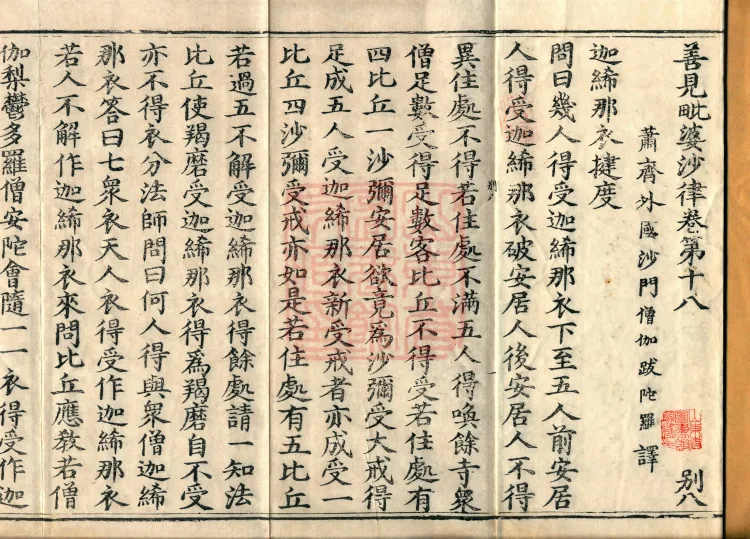 善見毗婆沙律卷第十八
別八
蕭齊外國沙門僧伽跋陀羅 譯
迦絺那衣揵度
問曰幾人得受迦絺那衣下至五人前安居
人得受迦絺那衣破安居人後安居人不得
異住處不得若住處不滿五人得喚餘寺衆
僧足數受得足數客比丘不得受若住處有
四比丘一沙彌安居欲竟爲沙彌受大戒得
足成五人受迦絺那衣新受戒者亦成受一
比丘四沙彌受戒亦如是若住處有五比丘
若過五不解受迦絺那衣得餘處請一知法
比丘使羯磨受迦絺那衣得爲羯磨自不受
亦不得衣分法師問曰何人得與衆僧迦絺
那衣答曰七衆衣天人衣得受作迦絺那衣
若人不解作迦絺那衣來問比丘應教若僧
伽梨鬱多羅僧安陀會隨一一衣得受作迦